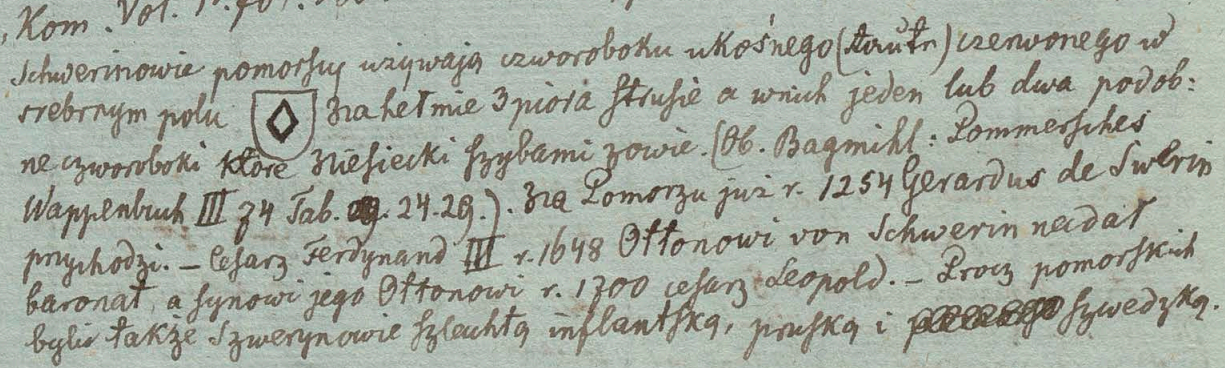 Kom. Vol.
Schwerinowie pomorscy używają czworoboku ukośnego (Raute) czerwonego w
srebrnym polu Na hełmie 3 pióra strusie a w nich jeden lub dwa podob:
ne czworoboki które Niesiecki szybami zowie. (Ob. Bagmihl: Pommersches
Wappenbuch III 74 Tab. 24.29.). Na Pomorzu już r. 1254 Gerardus de Swerin
przychodzi. – Cesarz Ferdynand III r. 1648 Ottonowi von Schwerin nadał
baronat, a synowi jego Ottonowi r. 1700 cesarz Leopold. – Procz pomorskich
byli także Szwerynowie szlachtą inflantską, pruską i szwedzką.